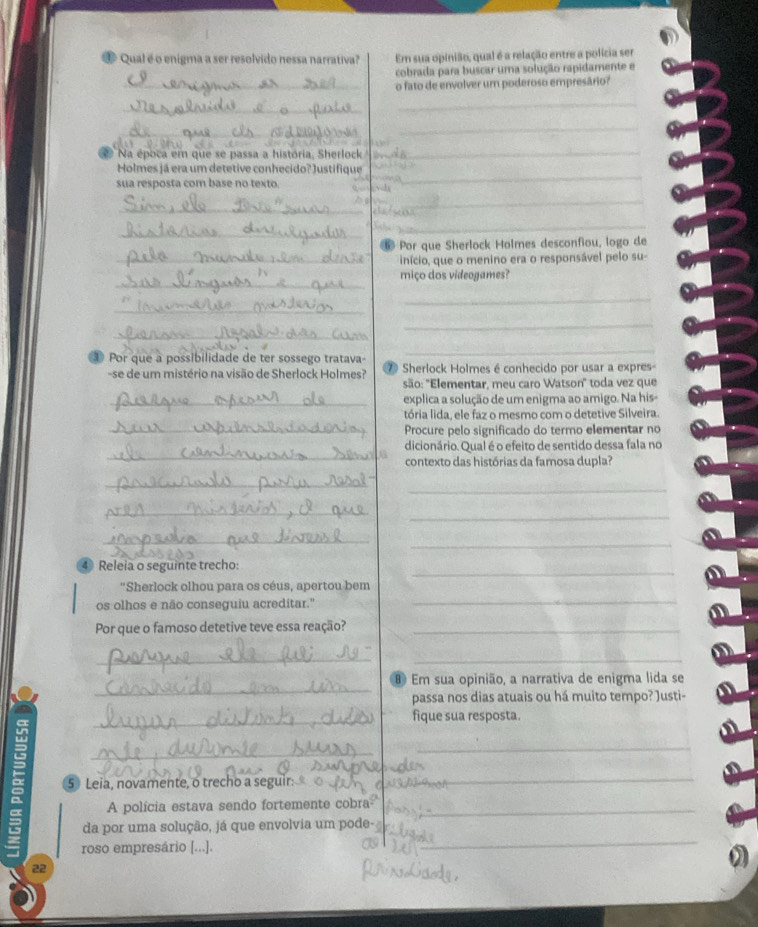 1 Qual é o enigma a ser resolvido nessa narrativa?
O enigma as ser
resolvido é o
de que
2 Na época em que se passa a história, Sherlock
Holmes já era um detetive conhecido? Justifique
sua resposta com base no texto.
Sim, ele teve "suas
histórias divulgadas
pelo mundo, em
línguas" e que
"inúmeros mistérios
3 Por que a possibilidade de ter sossego tratava-
-se de um mistério na visão de Sherlock Holmes?
porque apesar de
ele continuava sendo
procurado para resol-
ver mistérios, o que
impedia que tivesse
sussego
4 Releia o seguinte trecho:
"Sherlock olhou para os céus, apertou bem
os olhos e não conseguiu acreditar."
Por que o famoso detetive teve essa reação?
porque ele foi re-
conhecido em um
lugar distante,
durante suas
ferias, o que o surpreender
5 Leia, novamente, o trecho a seguir:
A polícia estava sendo fortemente cobra-
da por uma solução, já que envolvia um pode-
roso empresário [...].
Em sua opinião, qual é a relação entre a polícia ser
cobrada para buscar uma solução rapidamente e
o fato de envolver um poderoso empresário?
6 Por que Sherlock Holmes desconfiou, logo de
início, que o menino era o responsável pelo su-
miço dos videogames?
7 Sherlock Holmes é conhecido por usar a expres-
são: "Elementar, meu caro Watson" toda vez que
explica a solução de um enigma ao amigo. Na his-
tória lida, ele faz o mesmo com o detetive Silveira.
Procure pelo significado do termo elementar no
dicionário. Qual é o efeito de sentido dessa fala no
contexto das histórias da famosa dupla?
8 Em sua opinião, a narrativa de enigma lida se
passa nos dias atuais ou há muito tempo? Justi-
fique sua resposta.
LÍNGUA PORTUGUESA
22